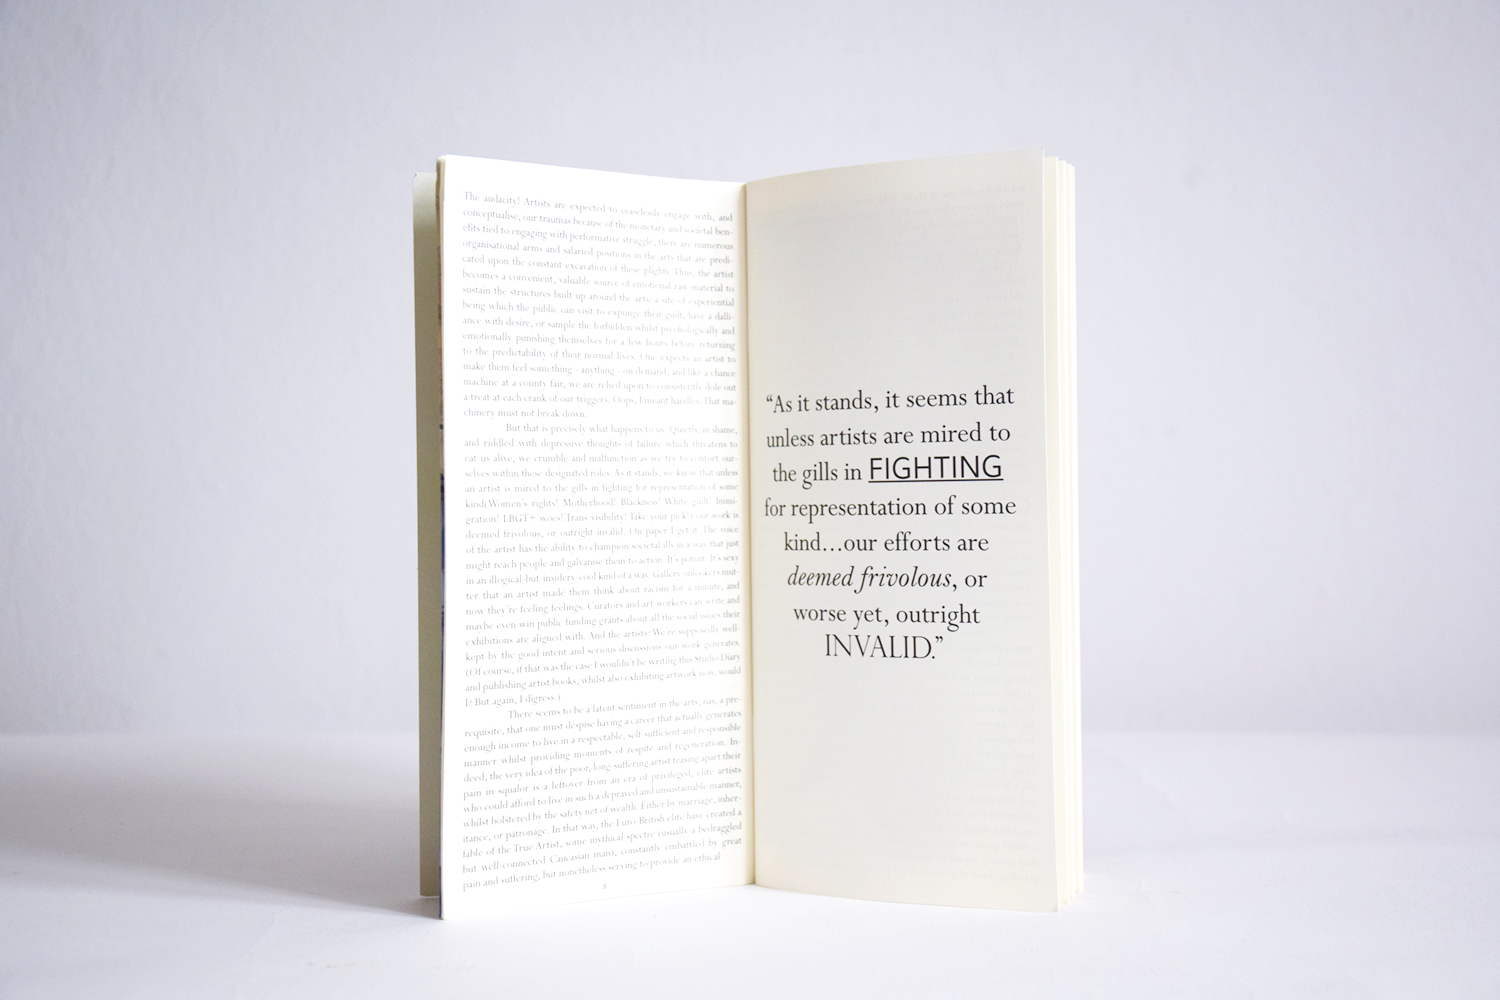 The audacity! Artists are expected to ceaselessly engage with, and
conceptualise, our traumas because of the monetary and societal ben-
efits tied to engaging with performative struggle; there are numerous
organisational arms and salaried positions in the arts that are predi-
cated upon the constant excavation of these plights. Thus, the artist
becomes a convenient, valuable source of emotional raw material to
sustain the structures built up around the arts: a site of experiential
being which the public can visit to expunge their guilt, have a dalli-
ance with desire, or sample the forbidden whilst psychologically and
emotionally punishing themselves for a few hours before returning
to the predictability of their normal lives. One expects an artist to
make them feel something - anything - on demand, and like a chance
machine at a county fair, we are relied upon to consistently dole out
a treat at each crank of our triggers. Oops, I meant handles. That ma-
chinery must not break down.
But that is precisely what happens to us. Quietly, in shame,
and riddled with depressive thoughts of failure which threatens to
eat us alive, we crumble and malfunction as we try to contort our-
selves within these designated roles. As it stands, we know that unless
an artist is mired to the gills in fighting for representation of some
kind(Women's rights! Motherhood! Blackness! White guilt! Immi-
gration! LBGT+ woes! Trans visibility! Take your pick!) our work is
deemed frivolous, or outright invalid. On paper I get it. The voice
of the artist has the ability to champion societal ills in a way that just
might reach people and galvanise them to action. It's potent. It's sexy
in an illogical-but-insidery-cool kind of a way. Gallery onlookers mut-
ter that an artist made them think about racism for a minute, and
now they're feeling feelings. Curators and art workers can write and
maybe even win public funding grants about all the social issues their
exhibitions are aligned with. And the artists? We're supposedly well-
kept by the good intent and serious discussions our work generates.
(Of course, if that was the case I wouldn't be writing this Studio Diary
and publishing artist books, whilst also exhibiting artwork now, would
I? But again, I digress.)
There seems to be a latent sentiment in the arts, nay, a pre-
requisite, that one must despise having a career that actually generates
enough income to live in a respectable, self-sufficient and responsible
manner whilst providing moments of respite and regeneration. In-
deed, the very idea of the poor, long-suffering artist teasing apart their
pain in squalor is a leftover from an era of privileged, elite artists
who could afford to live in such a depraved and unsustainable manner,
whilst bolstered by the safety net of wealth. Either by marriage, inher-
itance, or patronage. In that way, the Euro-British elite have created a
fable of the True Artist, some mythical spectre (usually a bedraggled
but well-connected Caucasian man), constantly embattled by great
pain and suffering, but nonetheless serving to provide an ethical
8
“As it stands, it seems that
unless artists are mired to
the gills in FIGHTING
for representation of some
kind...our efforts are
deemed frivolous, or
worse yet, outright
INVALID.”